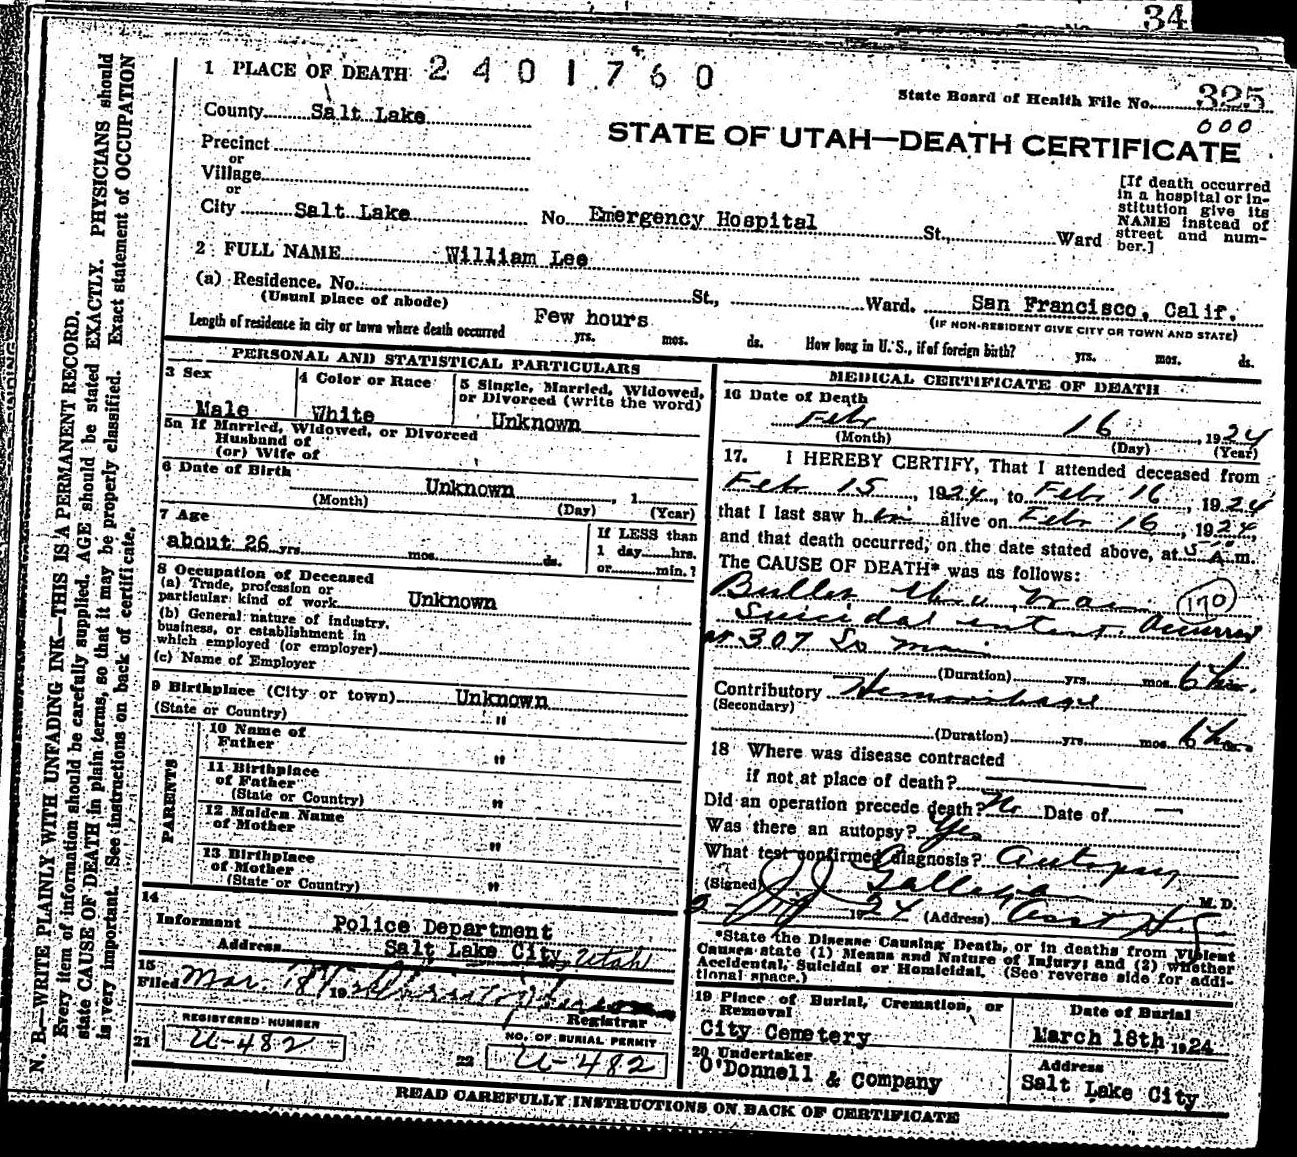 34
1 PLACE OF DEATH 2401760
State Board of Health File No. 325
000
County Salt Lake
STATE OF UTAH—DEATH CERTIFICATE
Precinct
or
Village
or
City Salt Lake No. Emergency Hospital St., Ward
[If death occurred
in a hospital or in-
stitution give its
NAME instead of
street and num-
ber.]
2 FULL NAME William Lee
(a) Residence. No. St., Ward. San Francisco, Calif.
(Usual place of abode) (IF NON-RESIDENT GIVE CITY OR TOWN AND STATE)
Length of residence in city or town where death occurred Few hours yrs. mos. ds. How long in U. S., if of foreign birth? yrs. mos. ds.
PERSONAL AND STATISTICAL PARTICULARS
3 Sex
Male
4 Color or Race
White
5 Single, Married, Widowed,
or Divorced (write the word)
Unknown
5a If Married, Widowed, or Divorced
Husband of
(or) Wife of
6 Date of Birth
Unknown , 1
(Month) (Day) (Year)
7 Age
about 26 yrs. mos. ds.
If LESS than
1 day hrs.
or min.?
8 Occupation of Deceased
(a) Trade, profession or
particular kind of work Unknown
(b) General nature of industry,
business, or establishment in
which employed (or employer)
(c) Name of Employer
9 Birthplace (City or town) Unknown
(State or Country) "
PARENTS
10 Name of
Father "
11 Birthplace
of Father "
(State or Country)
12 Maiden Name
of Mother "
13 Birthplace
of Mother "
(State or Country)
14
Informant Police Department
Address Salt Lake City, Utah
15
Filed Mar. 18 19
Registrar
REGISTERED NUMBER
21 U-482
NO. OF BURIAL PERMIT
22 U-482
MEDICAL CERTIFICATE OF DEATH
16 Date of Death
Feb 16, 1924
(Month) (Day) (Year)
17. I HEREBY CERTIFY, That I attended deceased from
Feb 15, 1924, to Feb 16, 1924
that I last saw him alive on Feb 16, 1924,
and that death occurred, on the date stated above, at 5 A.m.
The CAUSE OF DEATH* was as follows:
Bullet thru brain 170
Suicidal intent. Occurred
at 307 So Main
(Duration) yrs. mos. 6 hrs.
Contributory Hemorrhage
(Secondary)
(Duration) yrs. mos. 6 hrs.
18 Where was disease contracted
if not at place of death?
Did an operation precede death? No Date of —
Was there an autopsy? Yes
What test confirmed diagnosis? Autopsy
(Signed) J J Galligan M. D.
2- 1924 (Address) Asst
*State the Disease Causing Death, or in deaths from Violent
Causes state (1) Means and Nature of Injury; and (2) whether
Accidental, Suicidal or Homicidal. (See reverse side for addi-
tional space.)
19 Place of Burial, Cremation, or
Removal
City Cemetery
Date of Burial
March 18th 1924
20 Undertaker
O'Donnell & Company
Address
Salt Lake City
READ CAREFULLY INSTRUCTIONS ON BACK OF CERTIFICATE
N. B.—WRITE PLAINLY WITH UNFADING INK—THIS IS A PERMANENT RECORD.
Every item of information should be carefully supplied. AGE should be stated EXACTLY. PHYSICIANS should
state CAUSE OF DEATH in plain terms, so that it may be properly classified. Exact statement of OCCUPATION
is very important. (See instructions on back of certificate.